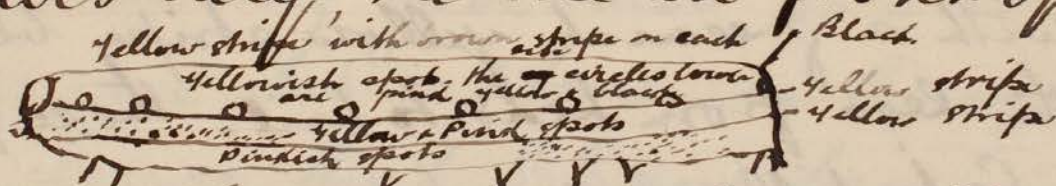 Yellow stripe with brown stripe on each side
Black
Yellowish spots. the circles
are pink yellow & black
Yellow stripe
Yellow stripe
Yellow & Pink spots
Pinkish spots